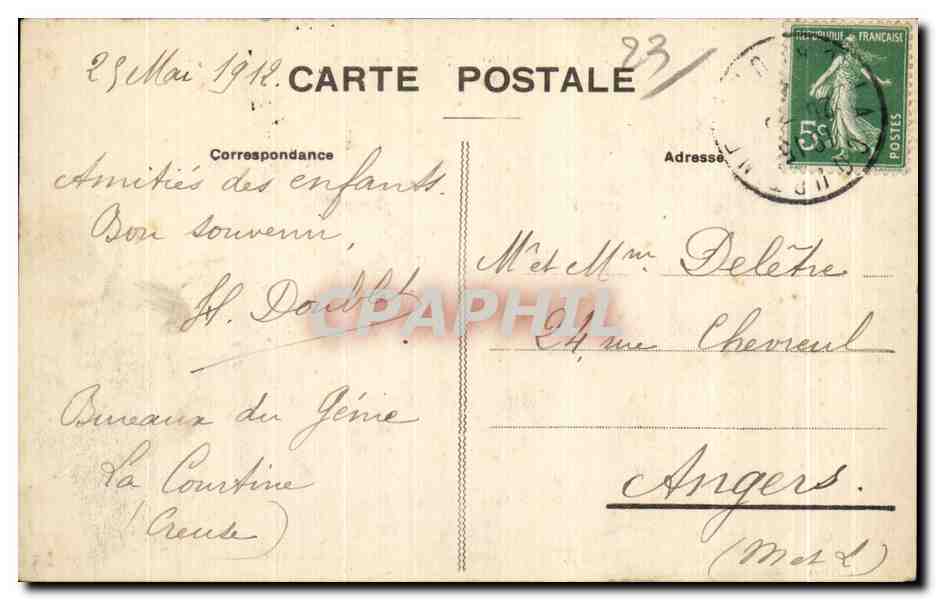 25 Mai 1912.
23
CARTE POSTALE
RÉPUBLIQUE FRANÇAISE
5c
POSTES
LA COURTINE
Correspondance
Adresse
Amitiés des enfants.
Bon souvenir,
H. Doublet
Bureaux du Génie
La Courtine
(Creuse)
Mr et Mme Delêtre
24, rue Chevreul
Angers.
(M et L)
CPAPHIL